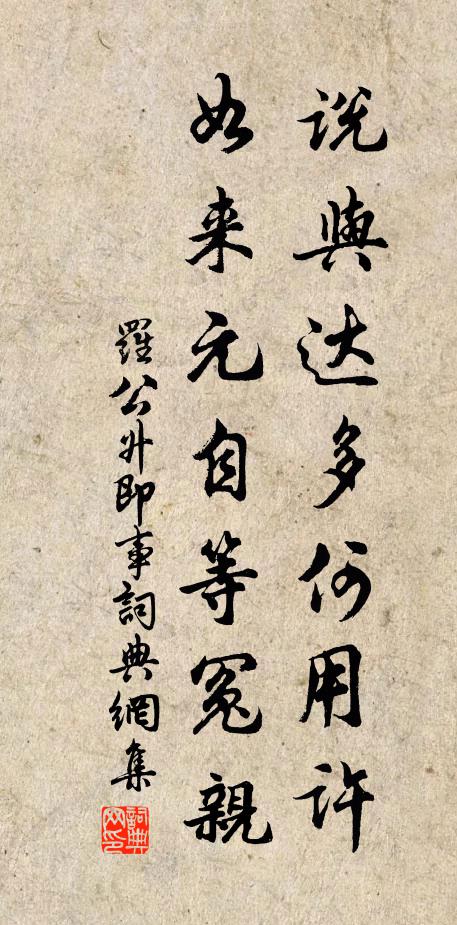 説與达多何用許
如来元自等冤親
羅公升即事詞典網集
詞典网印